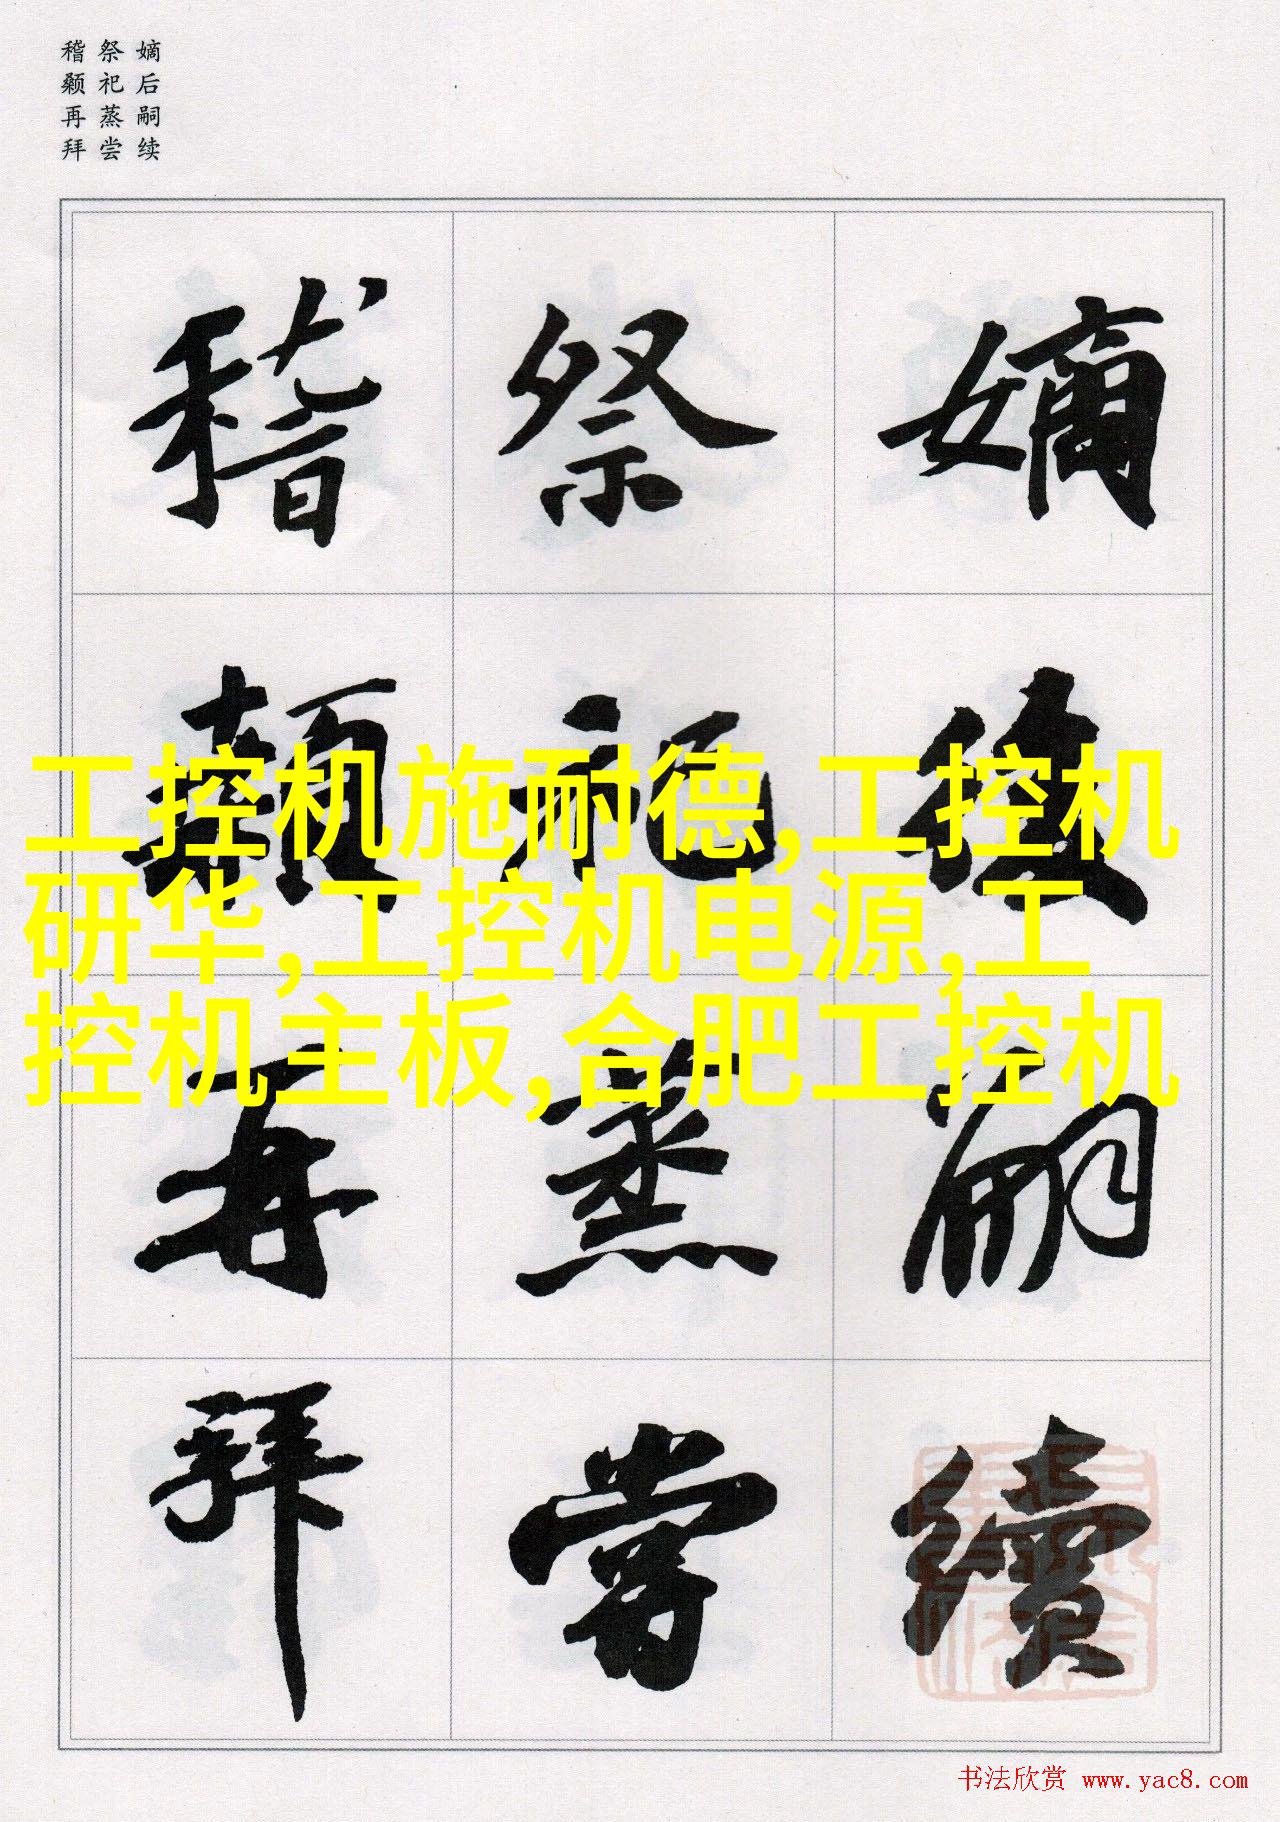 嫡后嗣续
祭祀蒸尝
稽颡再拜
嫡後嗣續
祭祀蒸嘗
稽顙再拜
工控机施耐德,工控机
研华,工控机电源,工
控机主板,合肥工控机
书法欣赏 www.yac8.com